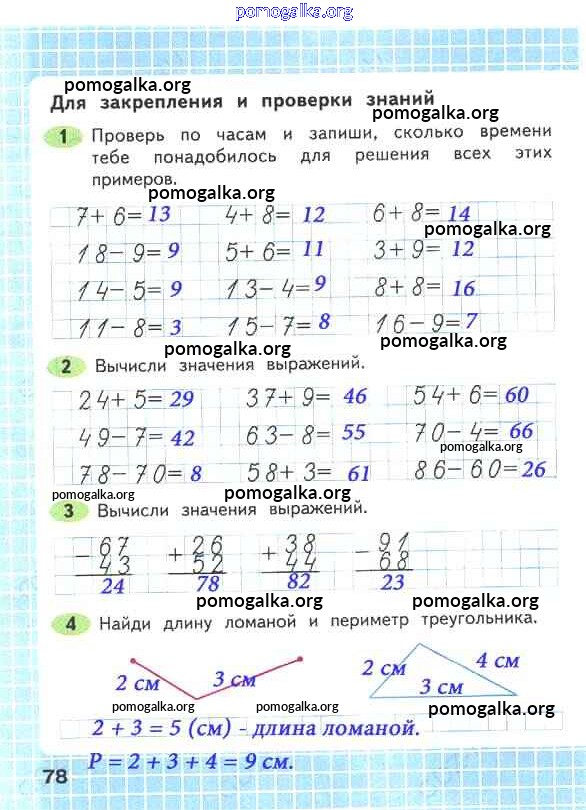 pomogalka.org
pomogalka.org
Для закрепления и проверки знаний
pomogalka.org
1 Проверь по часам и запиши, сколько времени
тебе понадобилось для решения всех этих
примеров.
pomogalka.org
7+6=13 4+8=12 6+8=14
pomogalka.org
18-9=9 5+6=11 3+9=12
pomogalka.org
14-5=9 13-4=9 8+8=16
pomogalka.org
11-8=3 15-7=8 16-9=7
pomogalka.org
2 Вычисли значения выражений.
24+5=29 37+9=46 54+6=60
49-7=42 63-8=55 70-4=66
pomogalka.org
78-70=8 58+3=61 86-60=26
pomogalka.org pomogalka.org pomogalka.org
3 Вычисли значения выражений.
- 67 + 26 + 38 - 91
43 52 44 68
24 78 82 23
pomogalka.org pomogalka.org
4 Найди длину ломаной и периметр треугольника.
2 см 3 см 2 см 4 см
3 см
pomogalka.org pomogalka.org pomogalka.org
2 + 3 = 5 (см) - длина ломаной.
P = 2 + 3 + 4 = 9 см.
78